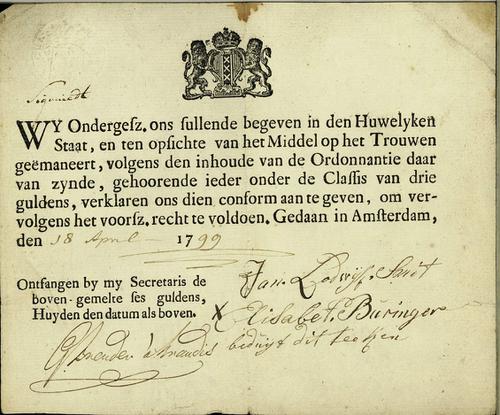 WY Ondergesz. ons sullende begeven in den Huwelyken
Staat, en ten opsichte van het Middel op het Trouwen
geëmaneert, volgens den inhoude van de Ordonnantie daar
van zynde, gehoorende ieder onder de Classis van drie
guldens, verklaren ons dien conform aan te geven, om ver-
volgens het voorsz. recht te voldoen. Gedaan in Amsterdam,
den 18 April 1799
Jan. Lodwyf. Sandt
Ontfangen by my Secretaris de
boven-gemelte ses guldens,
Huyden den datum als boven.
X Elisabet. Büringer
dit